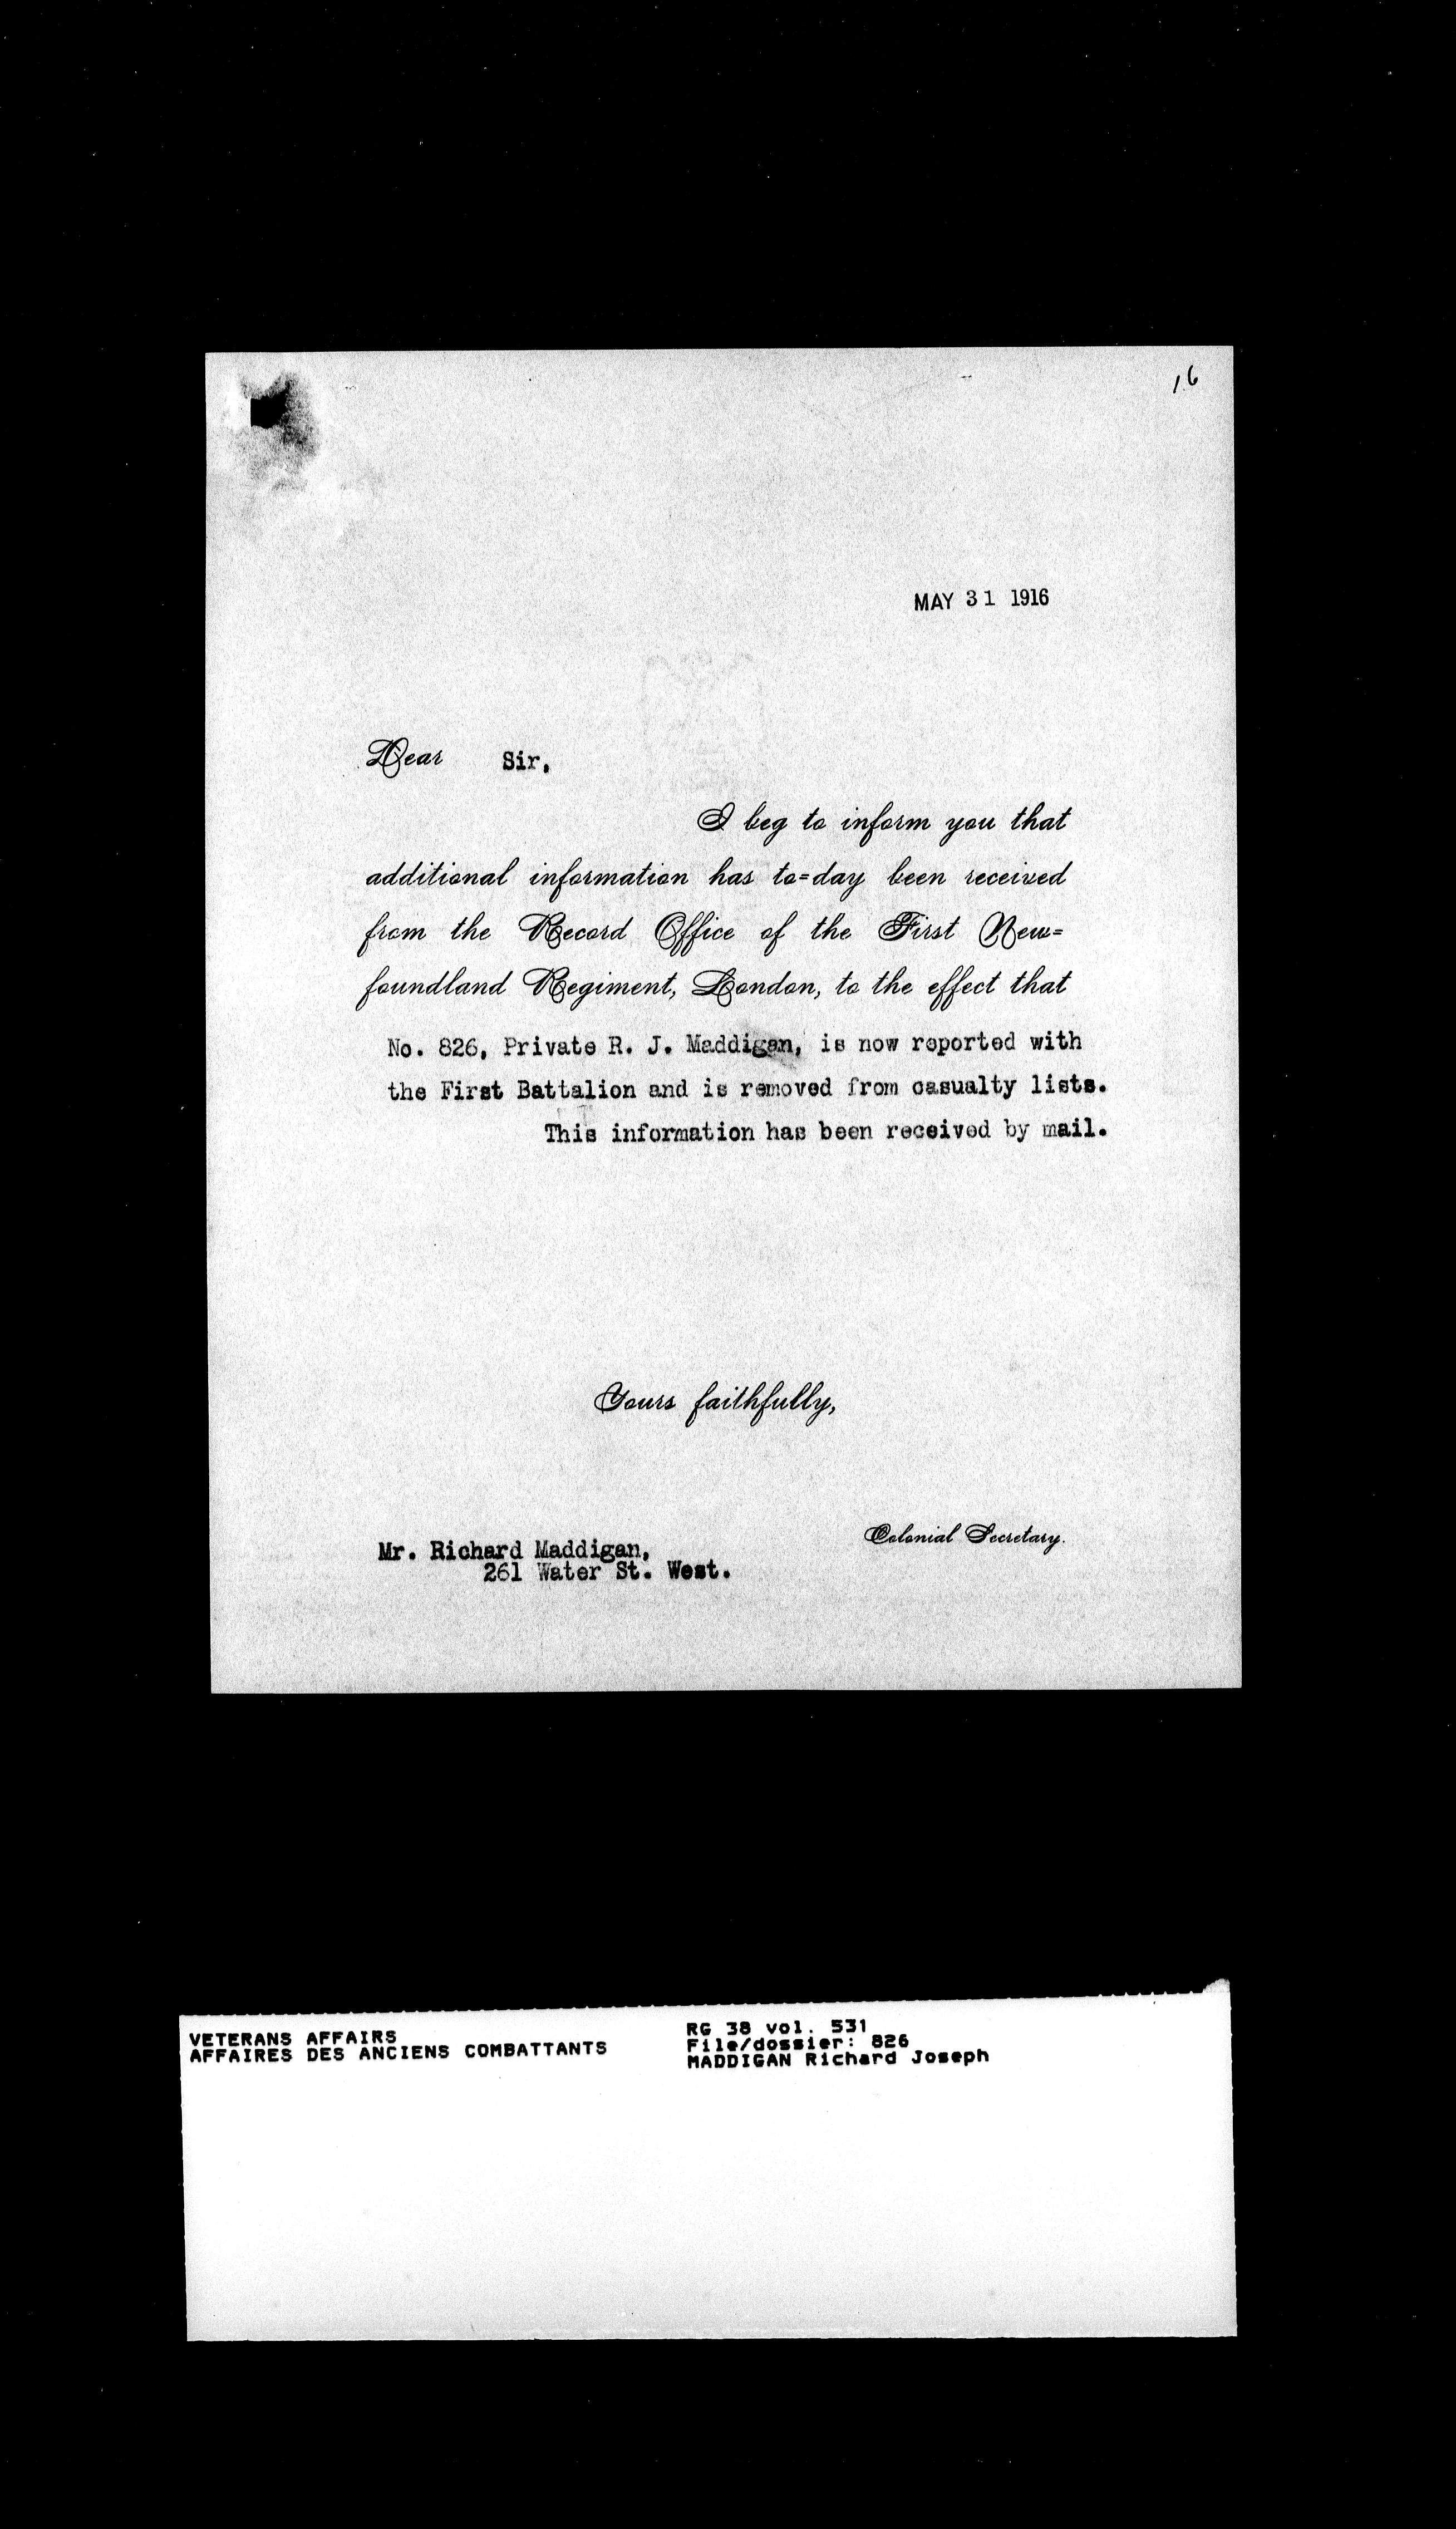 16
MAY 31 1916
Dear Sir,
I beg to inform you that
additional information has to=day been received
from the Record Office of the First New=
foundland Regiment, London, to the effect that
No. 826, Private R. J. Maddigan, is now reported with
the First Battalion and is removed from casualty lists.
This information has been received by mail.
Yours faithfully,
Colonial Secretary.
Mr. Richard Maddigan,
261 Water St. West.
VETERANS AFFAIRS
AFFAIRES DES ANCIENS COMBATTANTS
RG 38 vol. 531
File/dossier: 826
MADDIGAN Richard Joseph